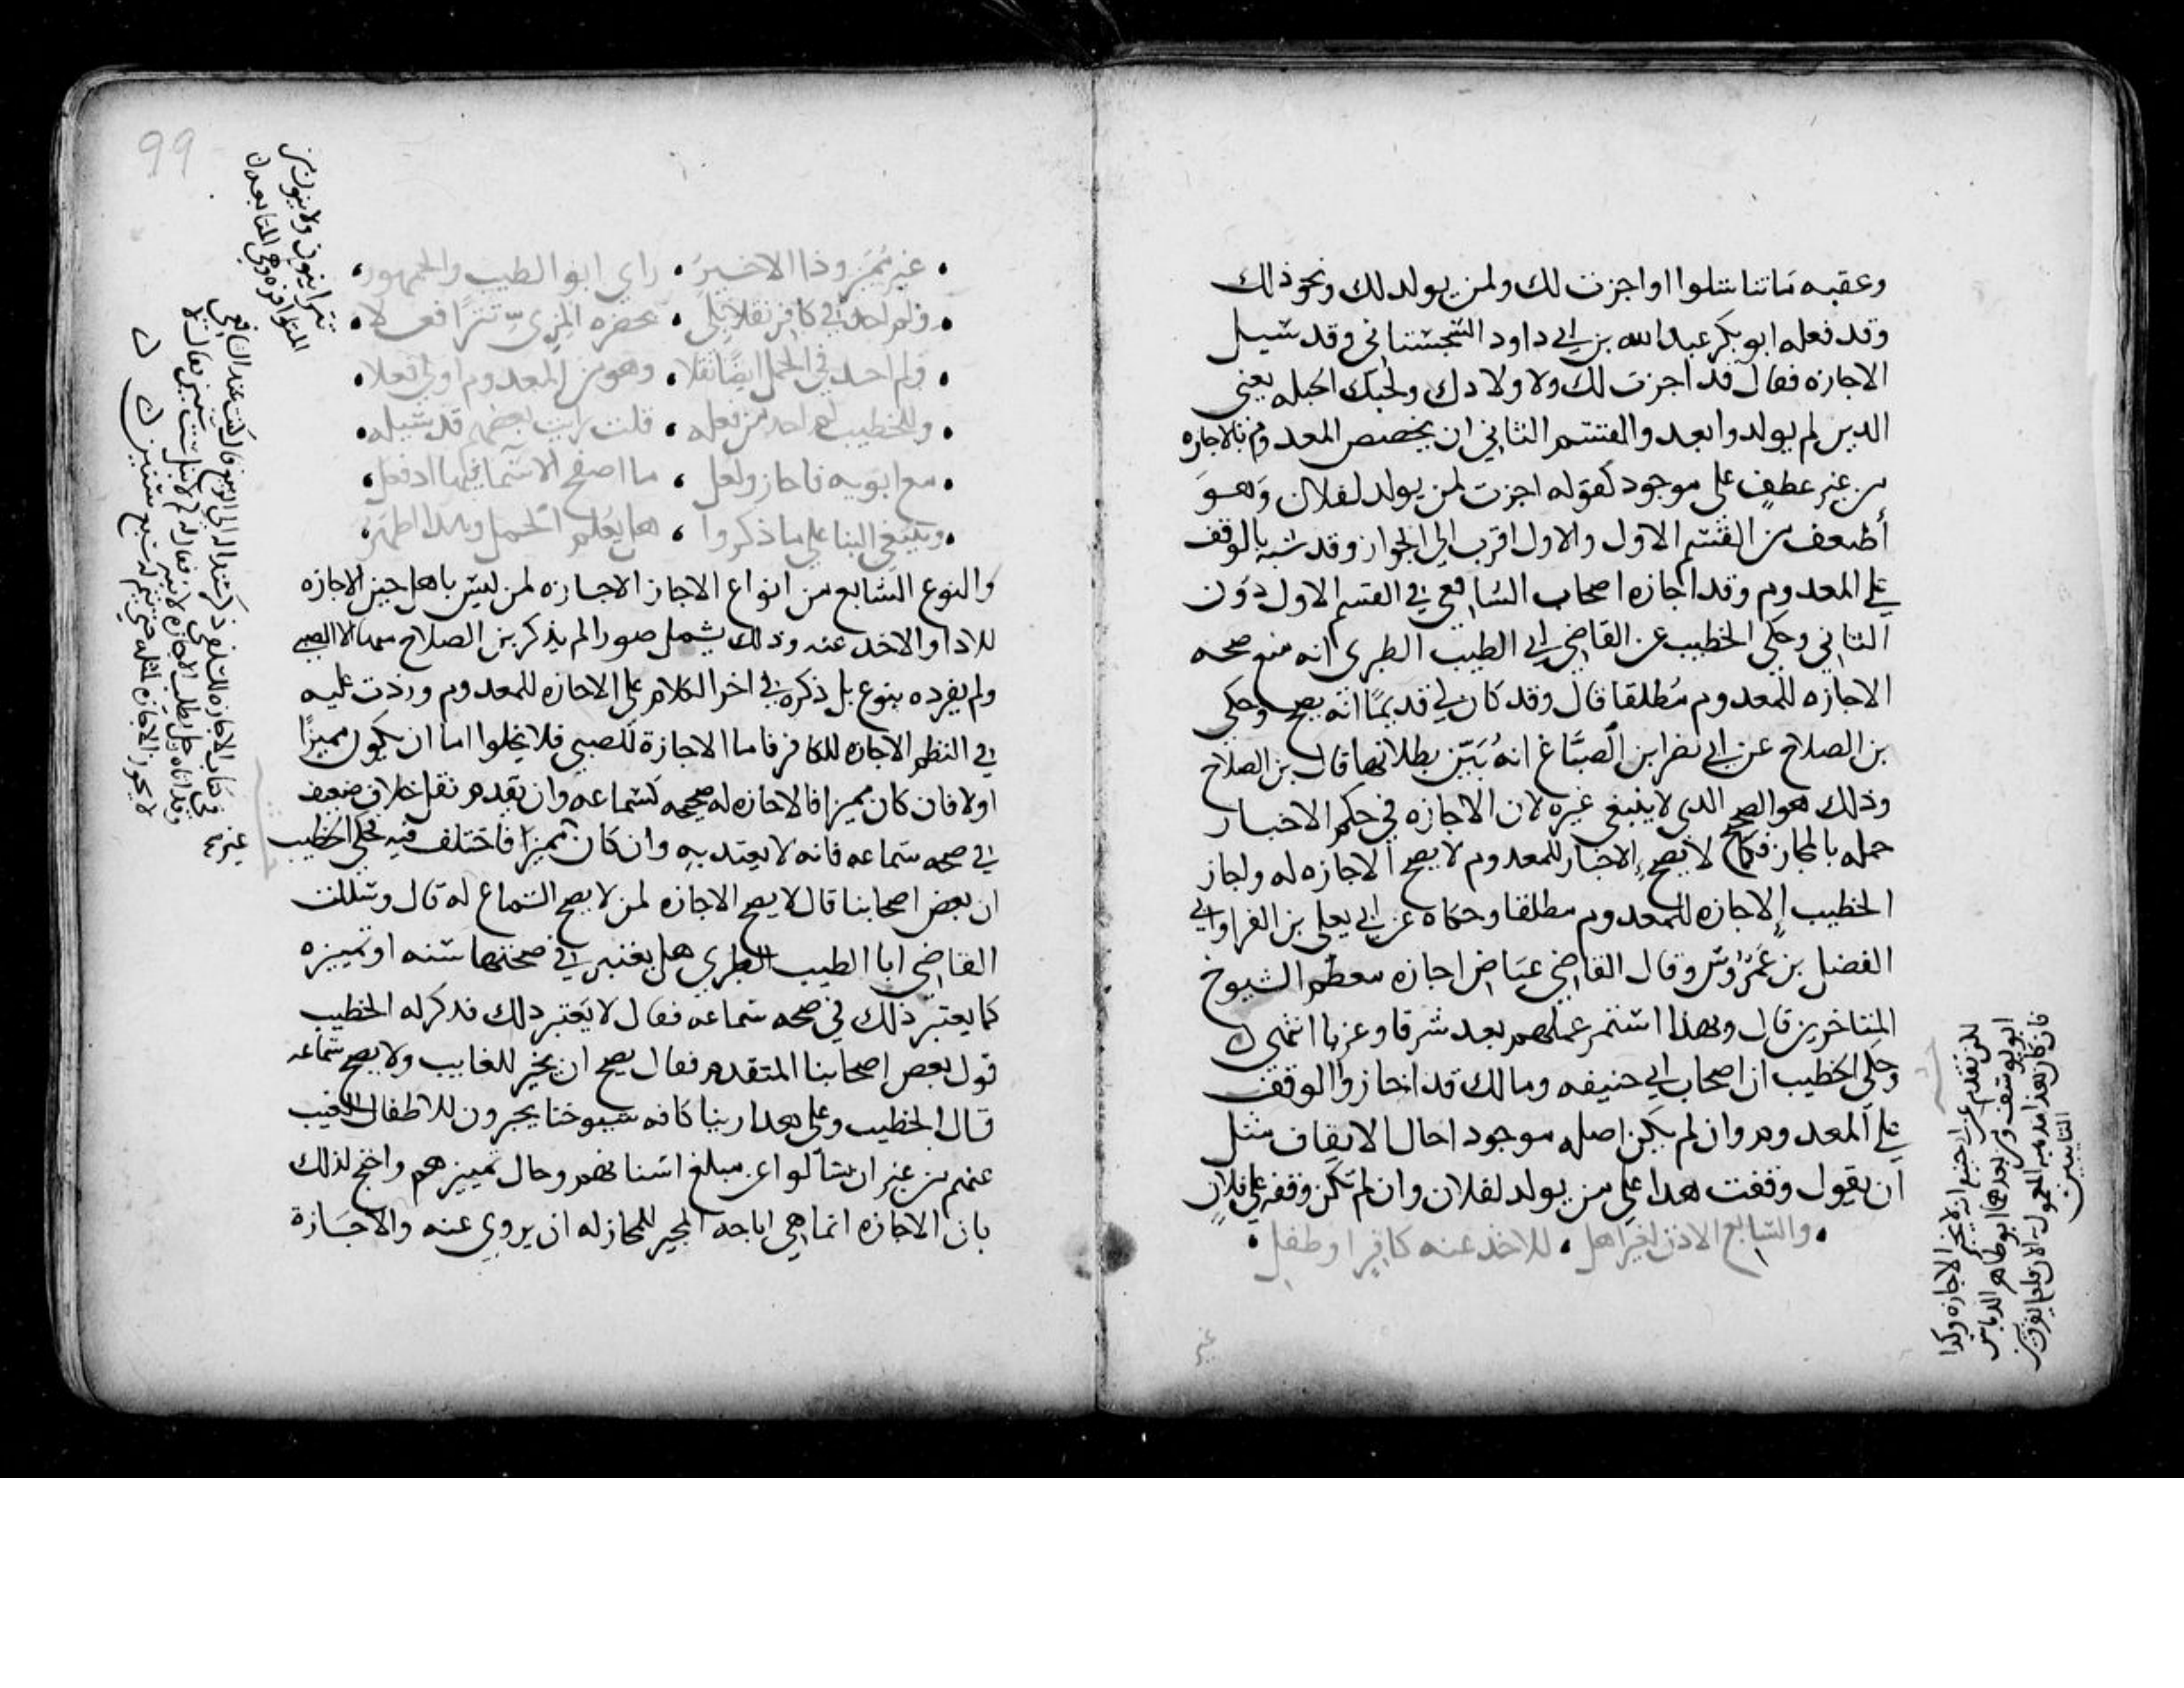 وعقبه ماتناسلوا او اجزت لك ولمن يولد لك ونحو ذلك
وقد فعله ابو بكر عبد الله بن ابي داود السجستاني وقد سيل
الاجازه فقال قد اجزت لك ولاولادك ولحبل الحبله يعني
الدين لم يولدوا بعد والقسم الثاني ان يخصص المعدوم بالاجازه
من غير عطف على موجود كقوله اجزت لمن يولد لفلان وهو
أضعف من القسم الاول والاول اقرب الى الجواز وقد شبه بالوقف
على المعدوم وقد اجازه اصحاب الشافعي في القسم الاول دون
الثاني وحكى الخطيب عن القاضي ابي الطيب الطبري انه منع صحه
الاجازه للمعدوم مطلقا قال وقد كان لي قديمًا انه يصح وحكى
بن الصلاح عن ابي نصر ابن الصبَّاغ انهُ بَيَّن بطلانها قال بن الصلاح
وذلك هو الصحيح الذي لا ينبغي غيره لان الاجازه في حكم الاخبار
جمله بالمجاز فكما لا يصح الاخبار للمعدوم لا يصح الاجازه له واجاز
الخطيب الاجازه للمعدوم مطلقا وحكاه عن ابي يعلى بن الفرا وابي
الفضل بن عَمْرُوس وقال القاضي عياض اجازه معظم الشيوخ
المتاخرين قال وبهذا استمر عملهم بعد شرقا وغربا انتهى
وحكى الخطيب ان اصحاب ابي حنيفه ومالك قد اجازوا الوقف
على المعدوم وان لم يكن اصله موجود احال الايقاف مثل
ان يقول وقفت هدا على من يولد لفلان وان لم يكن وقفه على فلان
والسابع الاذن لغير اهل • للاخذ عنه كافر او طفل
غير
ابو يوسف ومن بعدهما ابو طاهر الدباس
غير مميز وذا الاخير • راى ابو الطيب والجمهور
ولم اجد في كافر نقلا بلى • بحضره المزي تترا فعلا
ولم اجد في الحمل ايضا نقلا • وهو من المعدوم اولى فعلا
وللخطيب لم اجد من فعله • قلت رايت بعضهم قد سيله
مع ابويه فاجاز ولعل • ما اصفح الاسما فيها اذ فعل
وينبغي البنا على ما ذكروا • هل يعلم الحمل وهذا اظهر
والنوع السابع من انواع الاجاز الاجازه لمن ليس باهل حين الاجازه
للادا والاخد عنه وذلك يشمل صورا لم يذكر بن الصلاح منها الا الصبي
ولم يفرده بنوع بل ذكره في اخر الكلام على الاجازه للمعدوم وزدت عليه
في النظم الاجازه للكافر فاما الاجازة للصبي فلا يخلوا اما ان يكون مميزًا
اولا فان كان مميزا فالاجازه له صحيحه كسماعه وان تقدم نقل خلاف ضعيف
في صحه سماعه فانه لا يعتد به وان كان مميزا فاختلف فيه فحكى الخطيب
غير
ان بعض اصحابنا قال لا يصح الاجازه لمن لا يصح السماع له قال وسالت
القاضي ابا الطيب الطبري هل يعتبر في صحتها سنه او تمييزه
كما يعتبر ذلك في صحه سماعه فقال لا يعتبر ذلك فذكر له الخطيب
قول بعض اصحابنا المتقدم فقال يصح ان يجيز للغايب ولا يصح سماعه
قال الخطيب وعلى هدا راينا كافه شيوخنا يجيزون للاطفال الغيب
عنهم من غير ان يسألوا عن مبلغ اسنانهم وحال تمييزهم واحتج لذلك
بان الاجازه انما هي اباحه المجيز للمجاز له ان يروي عنه والاجازة
99